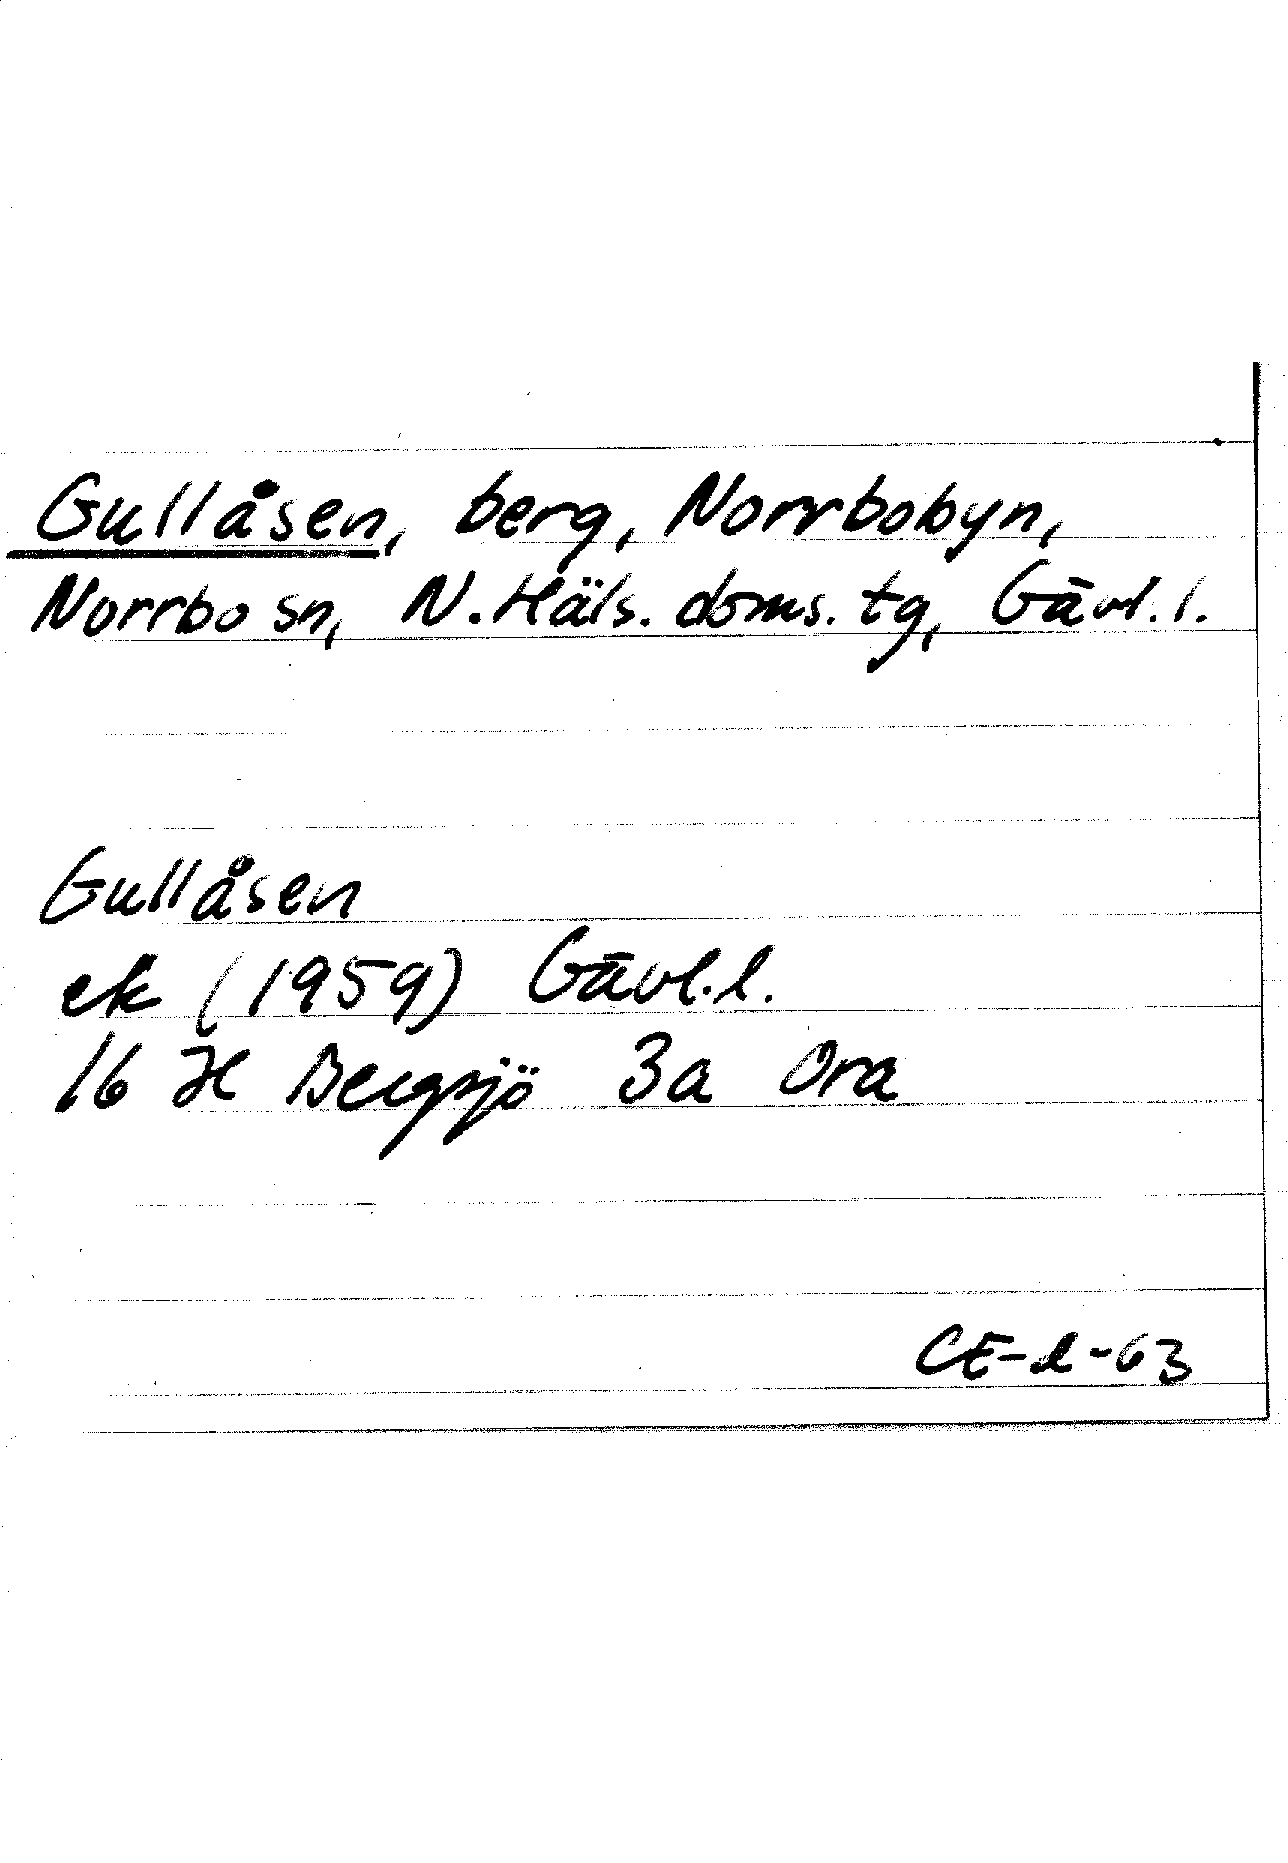 Gullåsen, berg, Norrbobyn,
Norrbo sn, N. Häls. doms. tg, Gävl. l.
Gullåsen
ek (1959) Gävl. l.
16 H Bergsjö 3a Ora
CE-l-63